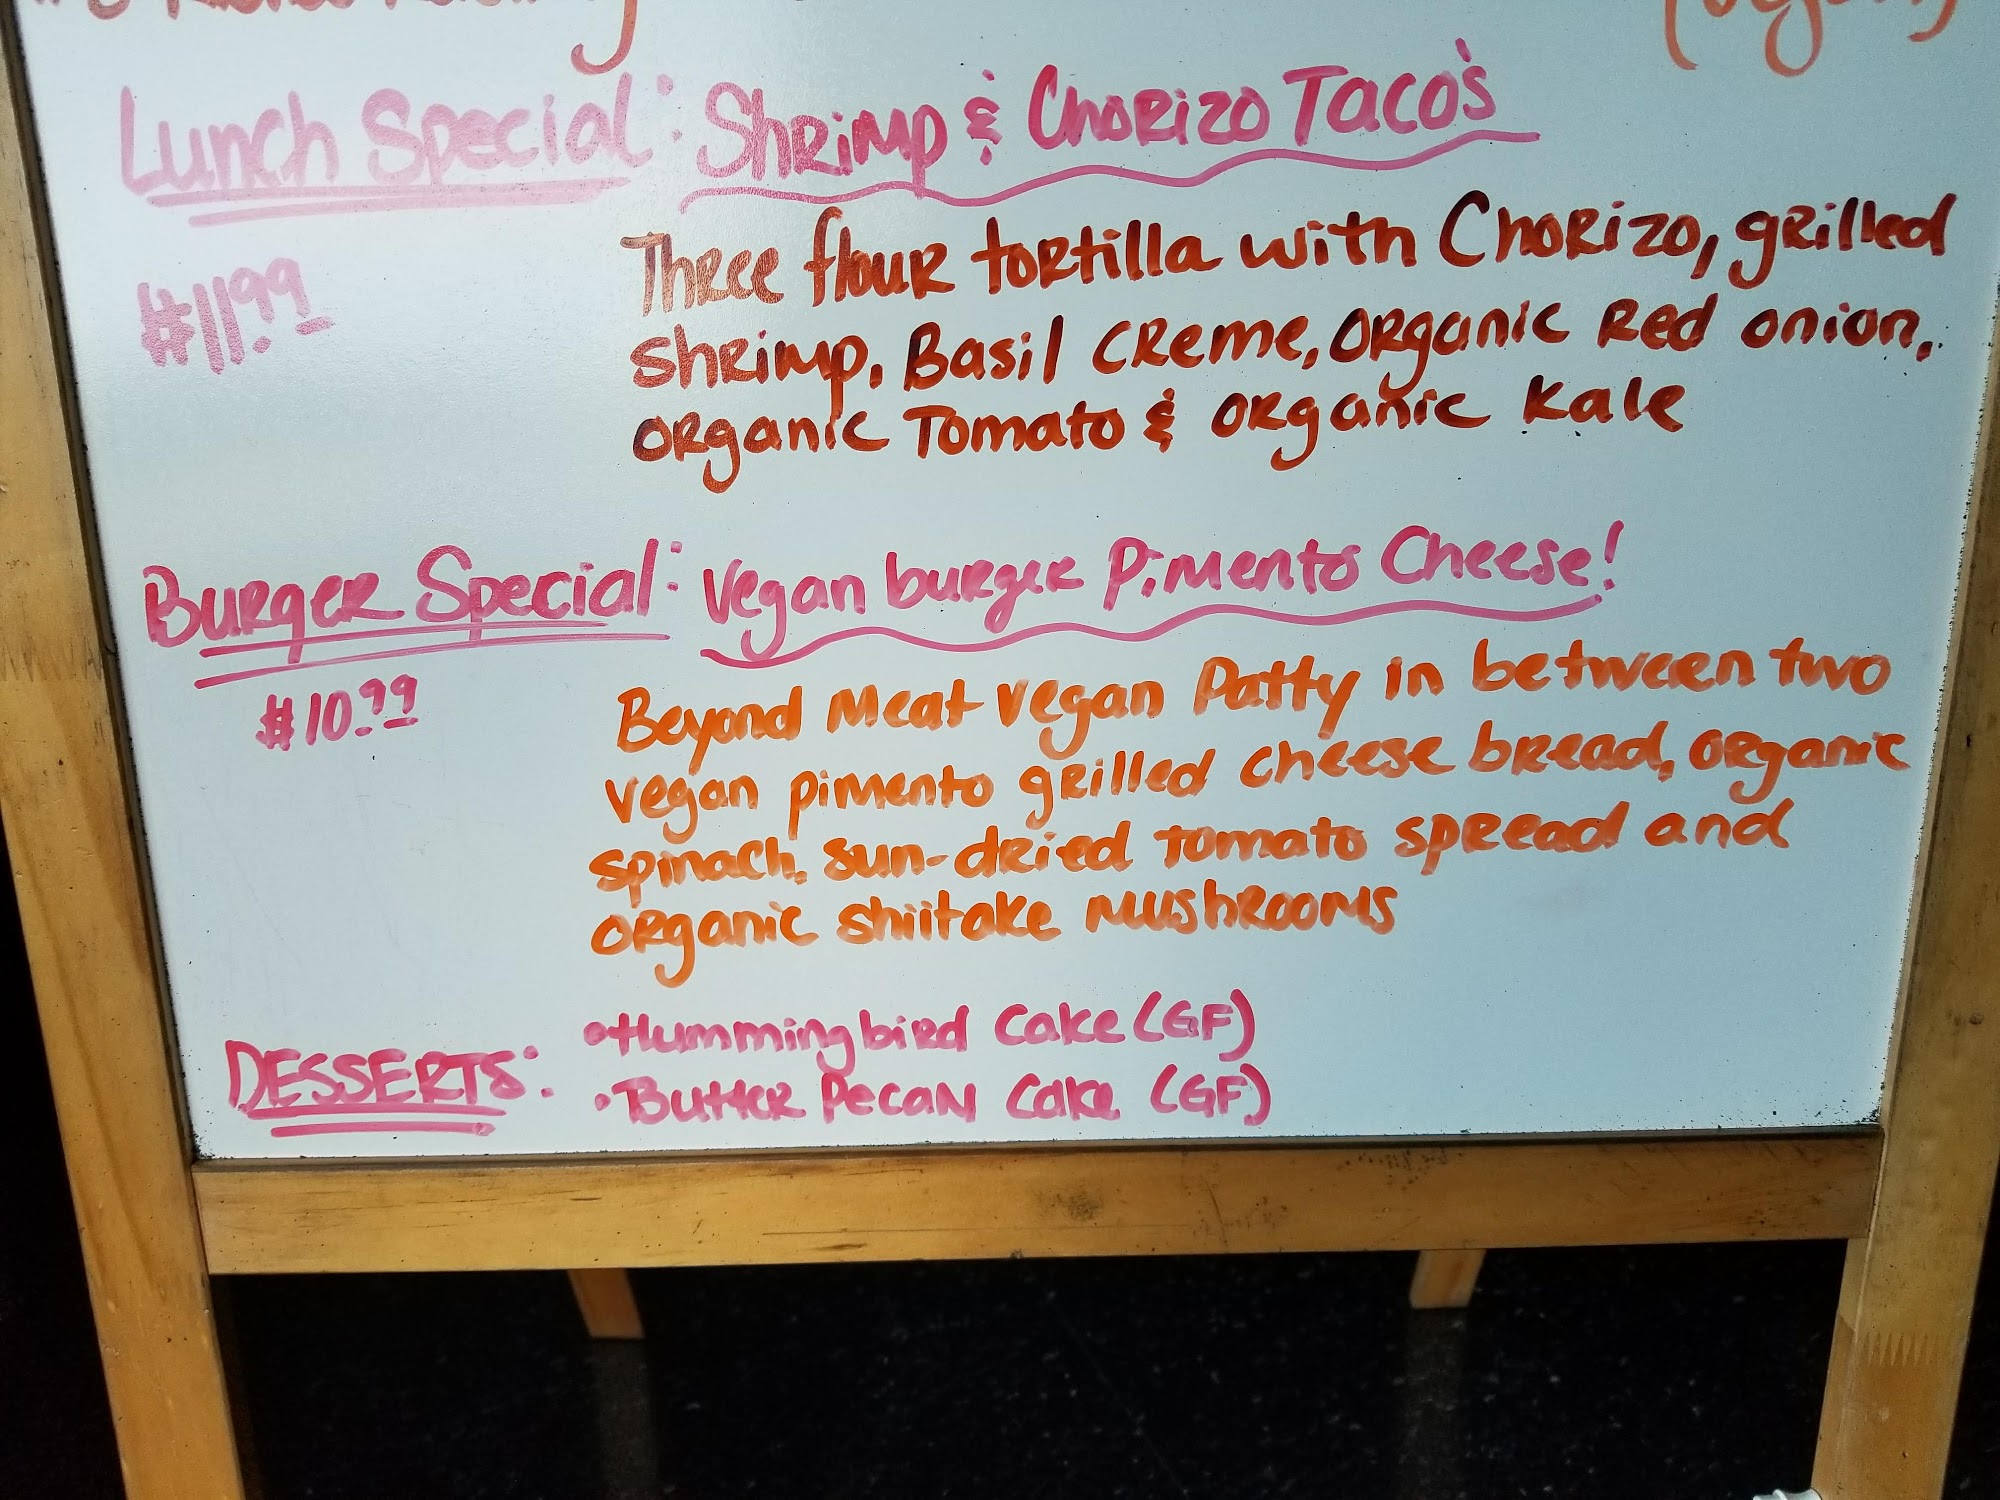 (vegan)
Lunch Special: Shrimp & Chorizo Taco's
$11.99
Three flour tortilla with Chorizo, grilled
shrimp, Basil Creme, organic Red onion,
organic Tomato & organic Kale
Burger Special: Vegan burger Pimento Cheese!
$10.99
Beyond Meat vegan Patty in between two
vegan pimento grilled cheese bread, organic
spinach, sun-dried tomato spread and
organic shiitake mushrooms
DESSERTS: •Hummingbird Cake (GF)
•Butter Pecan Cake (GF)